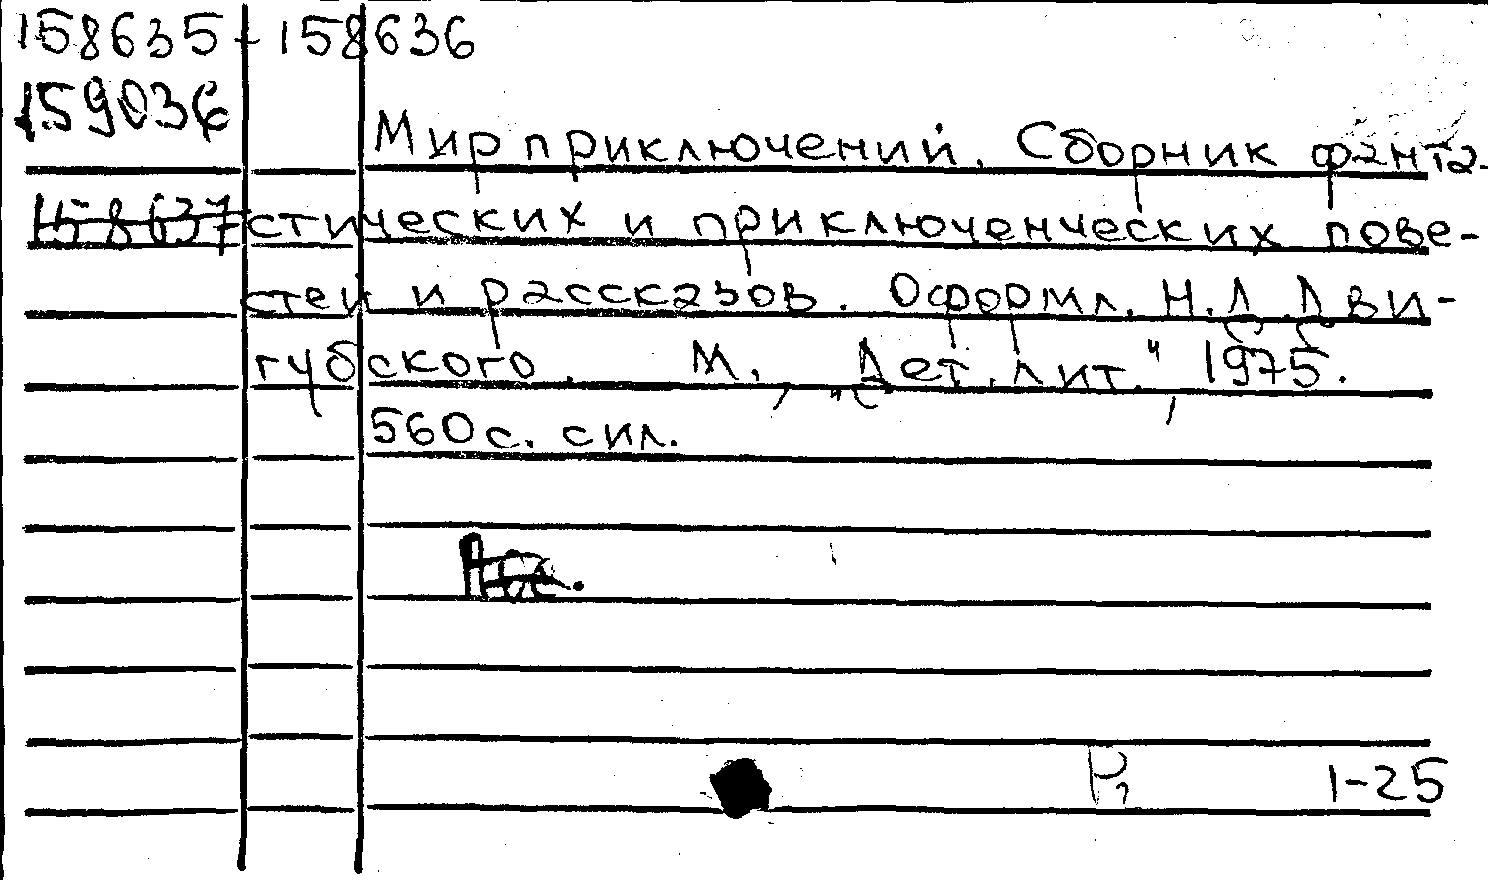 158635-158636
159036
Мир приключений. Сборник фанта-
158637
стических и приключенческих пове-
стей и рассказов. Оформл. Н.Д. Дви-
губского. М., „Дет. лит.“, 1975.
560 с. сил.
1-25